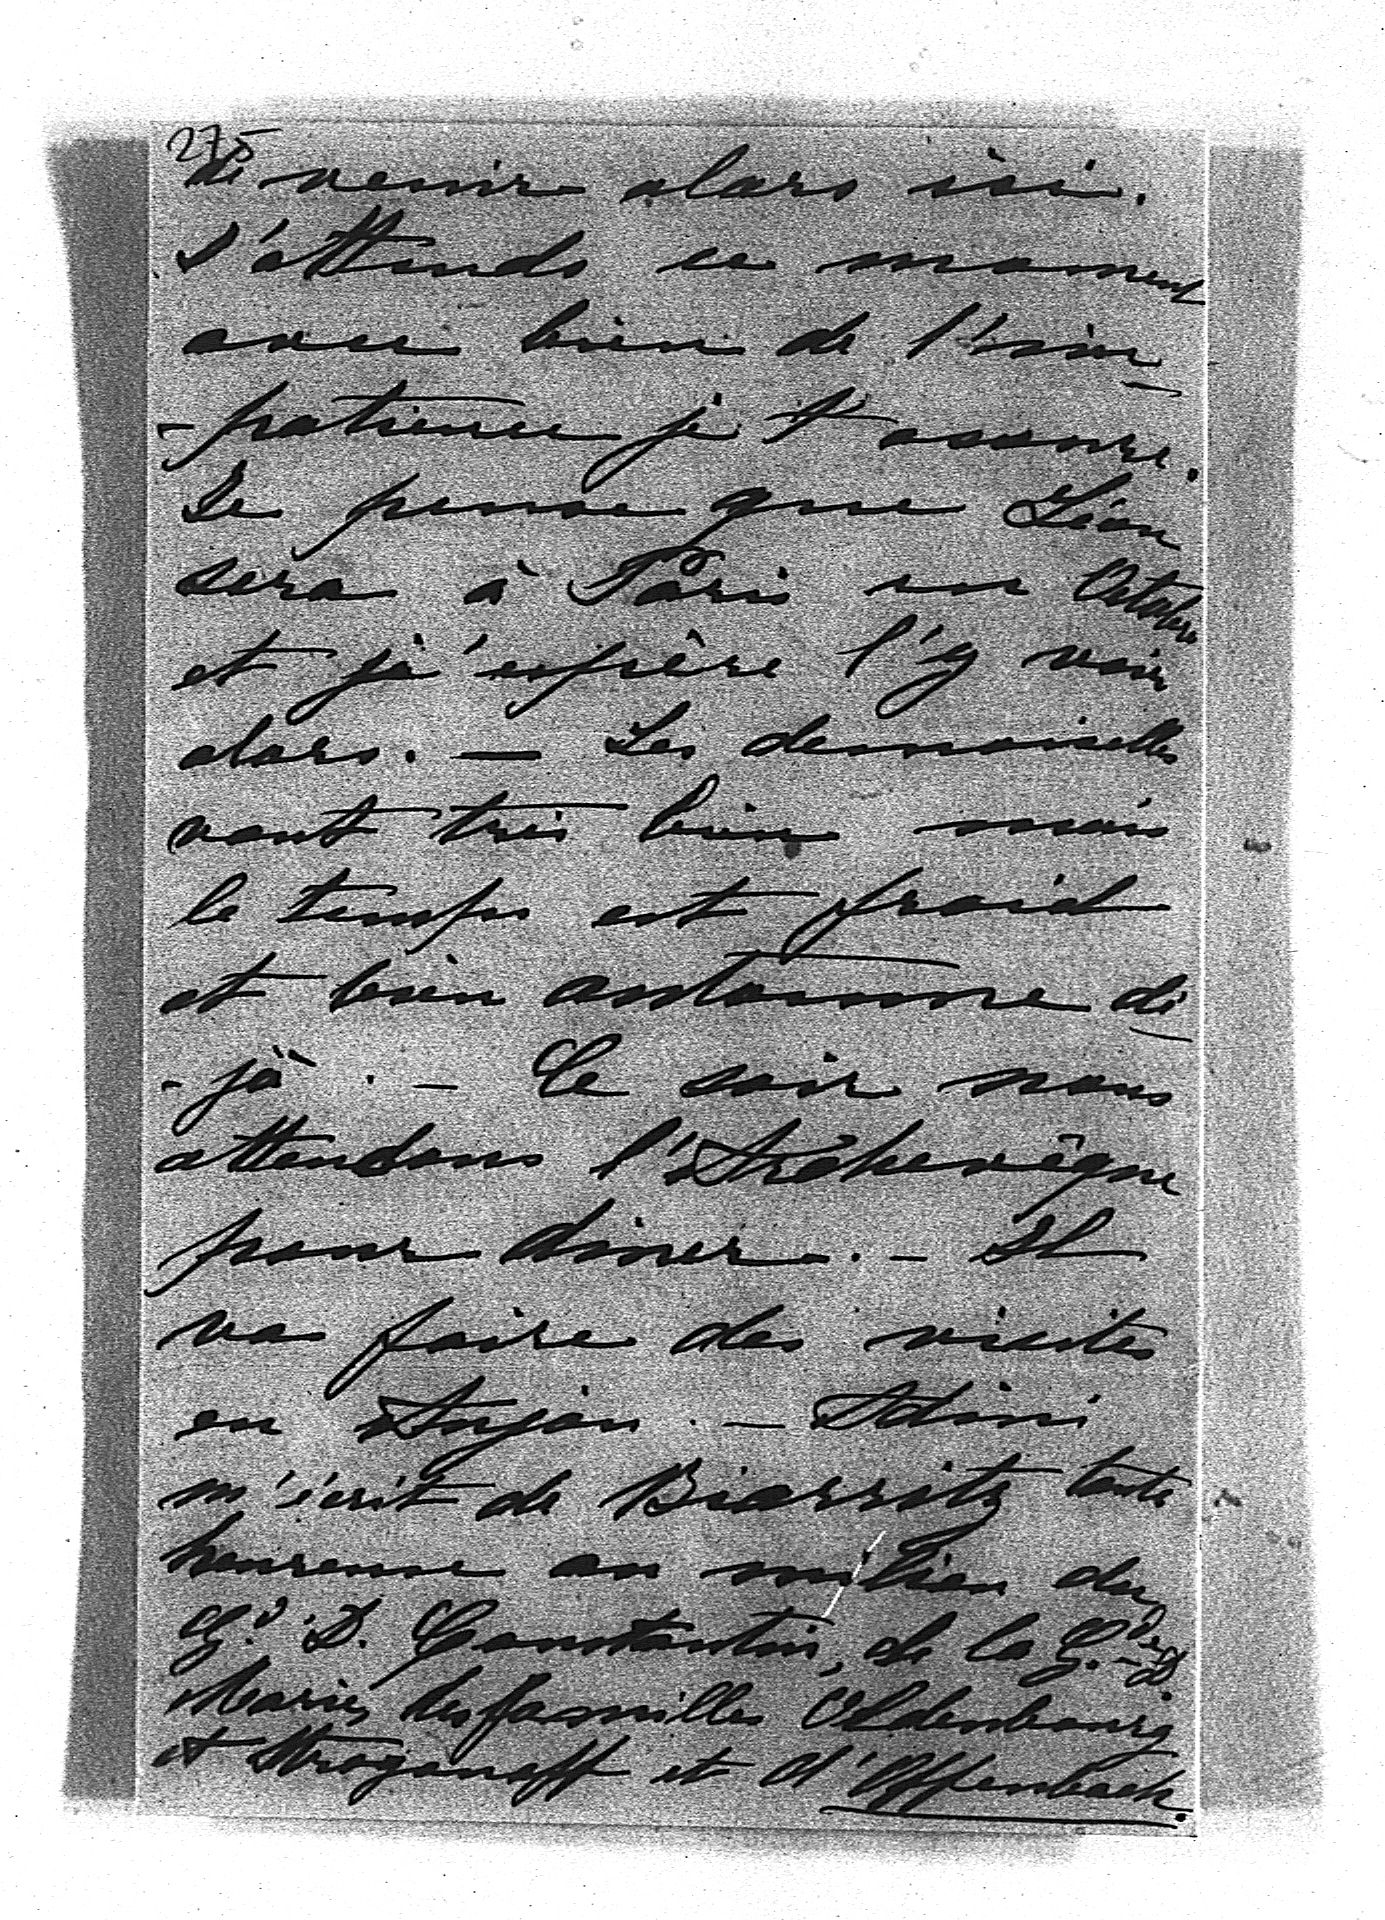 275
de venir alors ici.
J'attends ce moment
avec bien de l'im
-patience je t'assure.
Je pense que Léon
sera à Paris en Octobre
et j'espère l'y voir
alors. — Les demoiselles
vont très bien mais
le temps est froid
et bien automne dé
-jà. — Ce soir nous
attendons l'Archevêque
pour diner. — Il
va faire des visites
en Anjou. — Adini
m'écrit de Biarritz toute
heureuse au milieu du
Gd. D. Constantin, de la Gde. D.
Marie, des familles Oldenbourg
et Stroganoff et d'Offenbach.